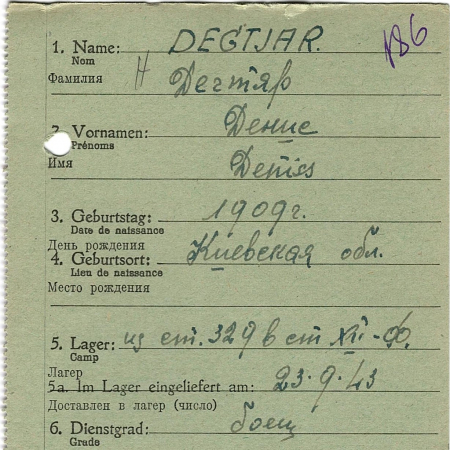 186
1. Name: DEGTJAR.
Nom
Фамилия Н Дегтяр
2. Vornamen: Денис
Prénoms
Имя Deniss
3. Geburtstag: 1909г.
Date de naissance
День рождения
4. Geburtsort: Киевская обл.
Lieu de naissance
Место рождения
5. Lager: из ст. 329 в ст
Camp
Лагер
5a. Im Lager eingeliefert am: 23.9.43
Доставлен в лагер (число)
6. Dienstgrad: боец
Grade